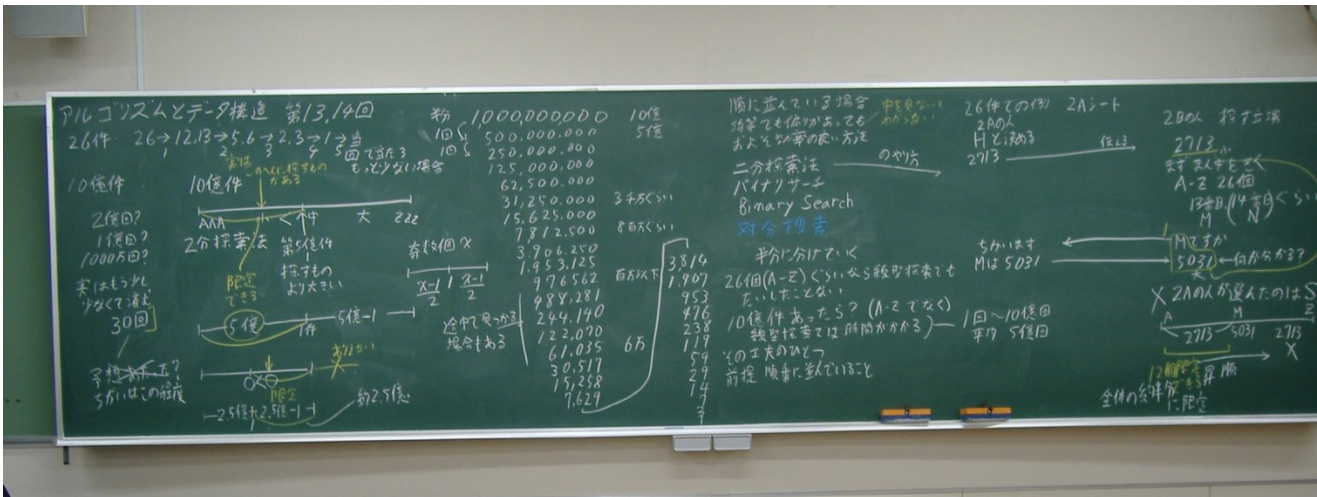 アルゴリズムとデータ構造 第13,14回
26件 26→12,13→5,6→2,3→1→当
1 2 3 4 5回で当たる
もっと少ない場合
10億件
2億回?
1億回?
1000万回?
実はもう少し
少なくて済む
30回
ちがいはこの程度
実は
この へんに探すもの
がある
10億件
AAA < 件 大 ZZZ
2分探索法
第5億件
探すもの
より大きい
限定
できる
5億 件 5億-1
ありえない
限定
2.5億 2.5億-1
約2.5億
奇数個 x
x-1/2 1 x-1/2
途中で見つかる
場合もある
1,000,000,000 10億
1回 500,000,000 5億
1回 250,000,000
125,000,000
62,500,000
31,250,000 3千万ぐらい
15,625,000
7,812,500 8百万ぐらい
3,906,250
1,953,125
976,562 百万以下
488,281
244,140
122,070
61,035 6万
30,517
15,258
7,629
3,814
1,907
953
476
238
119
59
29
14
7
3
順に並んでいる場合
均等でも偏りがあっても
およそ効率の良い方法
中を見ないと
わからない
二分探索法 のやり方
バイナリサーチ
Binary Search
対分探索
半分に分けていく
26個(A-Z)ぐらいなら線型探索でも
たいしたことない
10億件あったら? (A-Zでなく)
線型探索では時間がかかる) 1回〜10億回
平均 5億回
その工夫のひとつ
前提 順番に並んでいること
26件での例 2Aシート
2Aの人
Hで決める
2713 伝える
ちがいます
Mは5031
2Bの人 探す立場
2713
まずまん中をきく
A-Z 26個
13番目,(14番目)ぐらい
M N
Mですか
5031 ←何が分かる?
大
X 2Aの人が選んだのは
A M Z
2713 5031 2713
12個限定
できる 昇順
X
全体の約半分
に限定